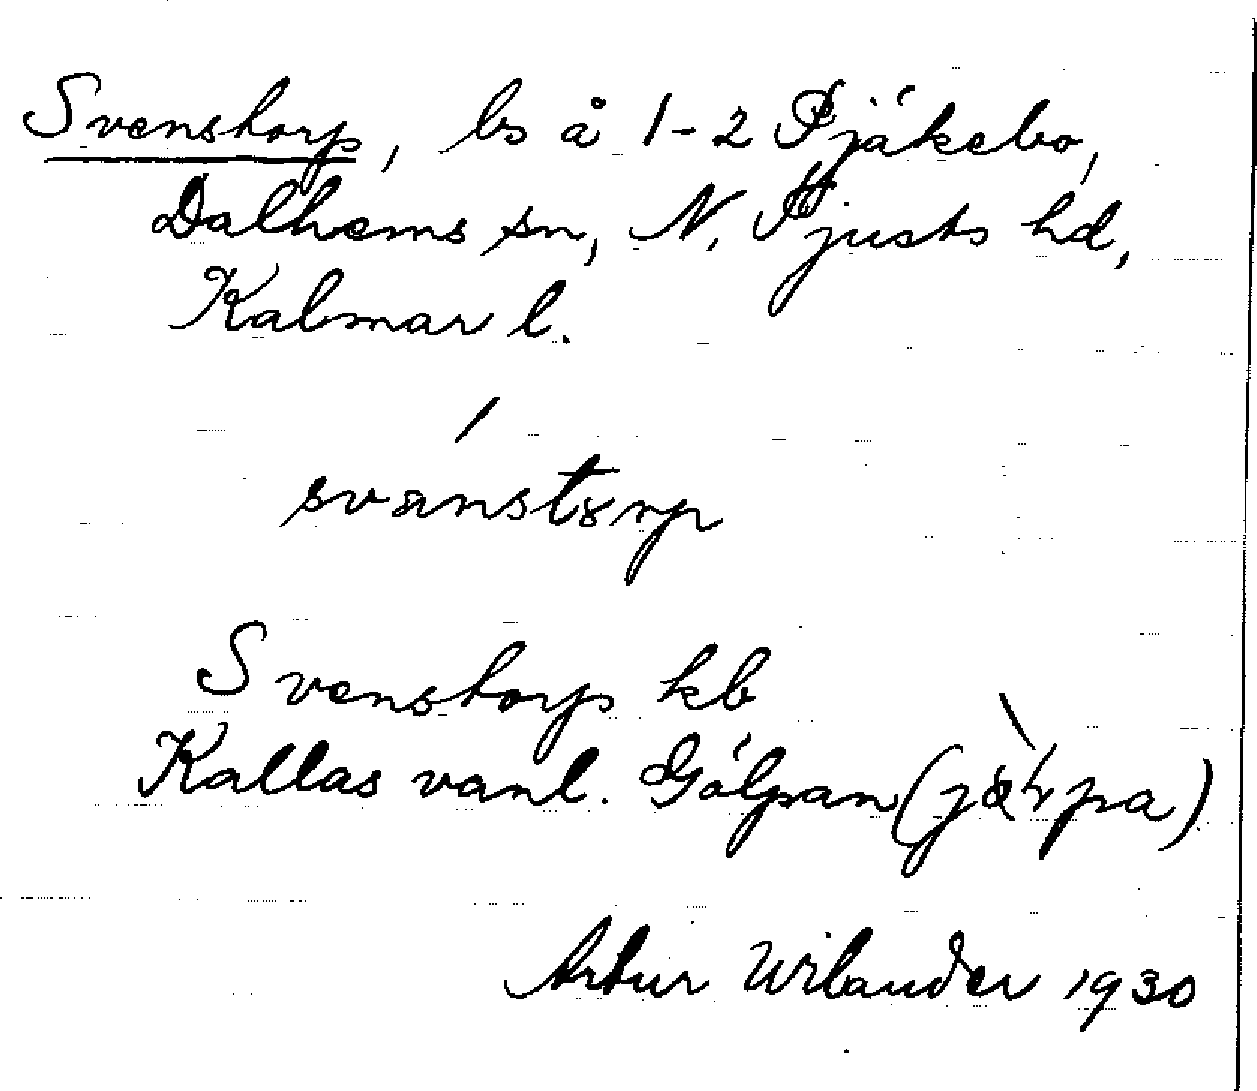 Svenstorp, ls å 1-2 Tjákebo,
Dalhems sn, N. Tjusts hd,
Kalmar l.
svanstɤrp
Svenstorp kb
Kallas vanl. Gólpan
Artur Wilander 1930